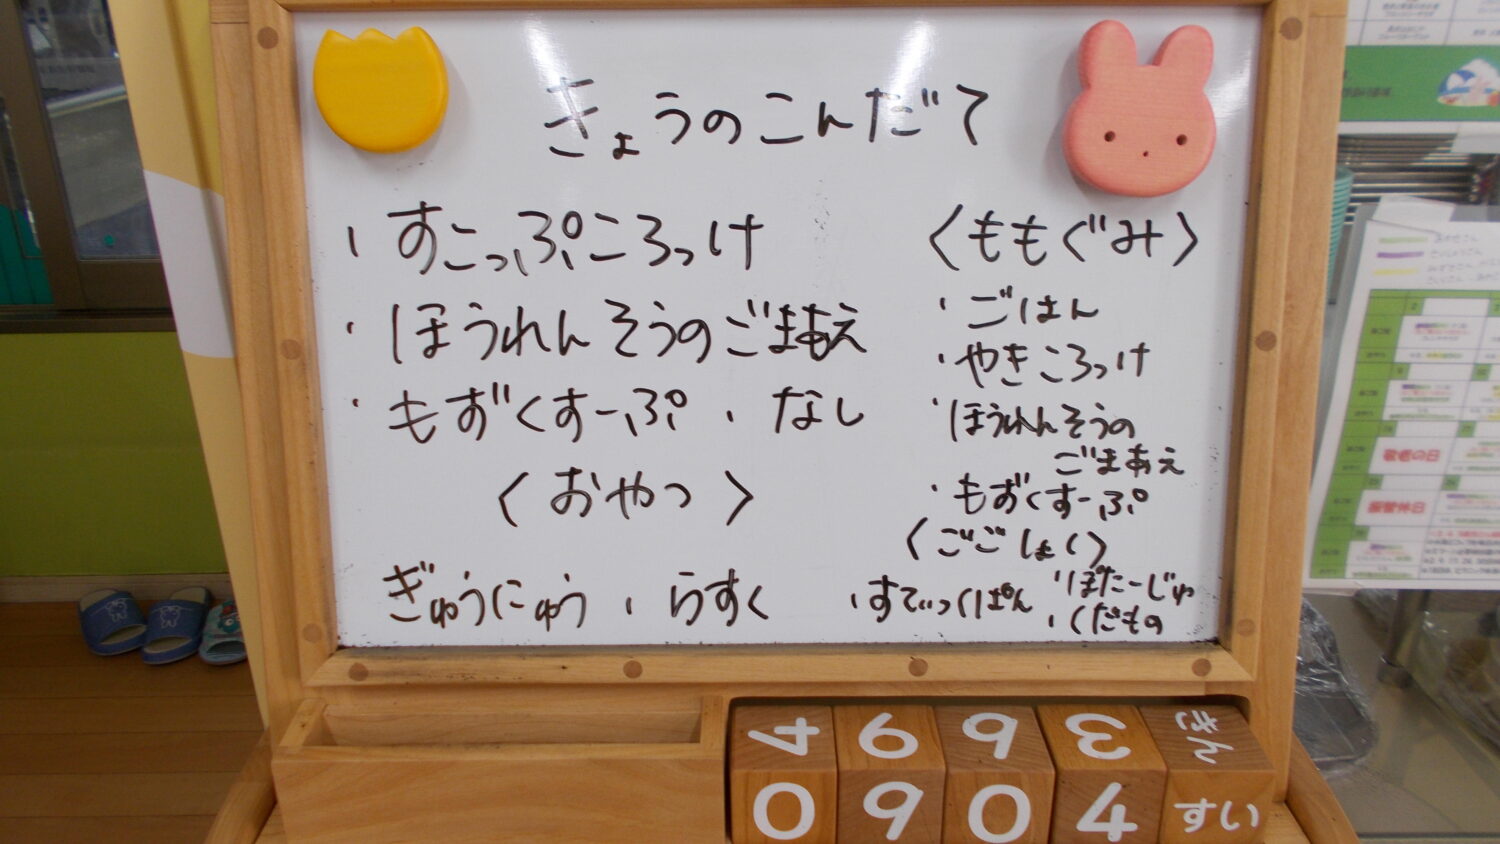 きょうのこんだて
・すこっぷころっけ
・ほうれんそうのごまあえ
・もずくすーぷ ・なし
〈おやつ〉
ぎゅうにゅう ・らすく
〈ももぐみ〉
・ごはん
・やきころっけ
・ほうれんそうの
ごまあえ
・もずくすーぷ
〈ごごしょく〉
・すてぃっくぱん
・ぽたーじゅ
・くだもの
4 6 9 3 きん
0 9 0 4 すい
敬老の日
振替休日